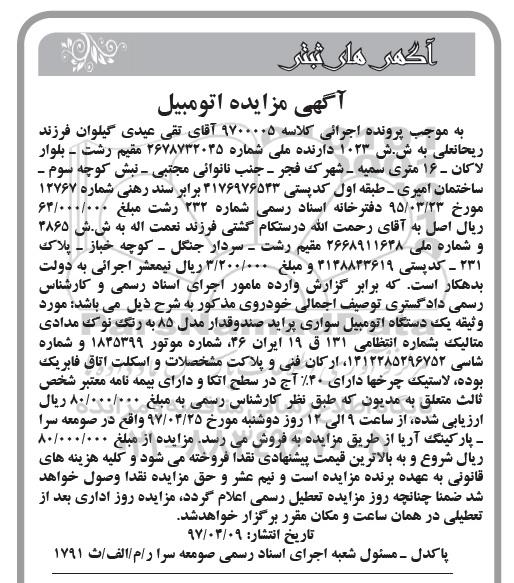 آگهی های ثبتی
آگهی مزایده اتومبیل
به موجب پرونده اجرائی کلاسه ۹۷۰۰۰۰۵ آقای تقی عیدی گیلوان فرزند
ریحانعلی به ش.ش ۱۰۲۳ دارنده ملی شماره ۲۶۷۸۷۳۲۰۴۵ مقیم رشت ـ بلوار
لاکان ـ ۱۶ متری سمیه ـ شهرک فجر ـ جنب نانوائی مجتبی ـ نبش کوچه سوم ـ
ساختمان امیری ـ طبقه اول کدپستی ۴۱۷۶۹۷۶۵۴۳ برابر سند رهنی شماره ۱۲۷۶۷
مورخ ۹۵/۰۳/۲۳ دفترخانه اسناد رسمی شماره ۲۳۲ رشت مبلغ ۶۴/۰۰۰/۰۰۰
ریال اصل به آقای رحمت الله درستکام گشتی فرزند نعمت اله به ش.ش ۴۸۶۵
و شماره ملی ۲۶۶۸۹۱۱۶۴۸ مقیم رشت ـ سردار جنگل ـ کوچه خباز ـ پلاک
۲۳۱ ـ کدپستی ۴۱۴۸۸۴۳۶۱۹ و مبلغ ۳/۲۰۰/۰۰۰ ریال نیمعشر اجرائی به دولت
بدهکار است. که برابر گزارش وارده مامور اجرای اسناد رسمی و کارشناس
رسمی دادگستری توصیف اجمالی خودروی مذکور به شرح ذیل می باشد: مورد
وثیقه یک دستگاه اتومبیل سواری پراید صندوقدار مدل ۸۵ به رنگ نوک مدادی
متالیک بشماره انتظامی ۱۳۱ ق ۱۹ ایران ۴۶، شماره موتور ۱۸۴۵۳۹۹ و شماره
شاسی ۱۴۱۲۲۸۵۲۹۶۷۵۲، ارکان فنی و پلاکت مشخصلات و اسکلت اتاق فابریک
بوده، لاستیک چرخها دارای ۴۰٪ آج در سطح اتکا و دارای بیمه نامه معتبر شخص
ثالث متعلق به مدیون که طبق نظر کارشناس رسمی به مبلغ ۸۰/۰۰۰/۰۰۰ ریال
ارزیابی شده، از ساعت ۹ الی ۱۲ روز دوشنبه مورخ ۹۷/۰۴/۲۵ واقع در صومعه سرا
ـ پارکینگ آریا از طریق مزایده به فروش می رسد. مزایده از مبلغ ۸۰/۰۰۰/۰۰۰
ریال شروع و به بالاترین قیمت پیشنهادی نقدا فروخته می شود و کلیه هزینه های
قانونی به عهده برنده مزایده است و نیم عشر و حق مزایده نقدا وصول خواهد
شد ضمنا چنانچه روز مزایده تعطیل رسمی اعلام گردد، مزایده روز اداری بعد از
تعطیلی در همان ساعت و مکان مقرر برگزار خواهدشد.
تاریخ انتشار: ۹۷/۰۴/۰۹
پاکدل ـ مسئول شعبه اجرای اسناد رسمی صومعه سرا ر/م/الف/ث ۱۷۹۱